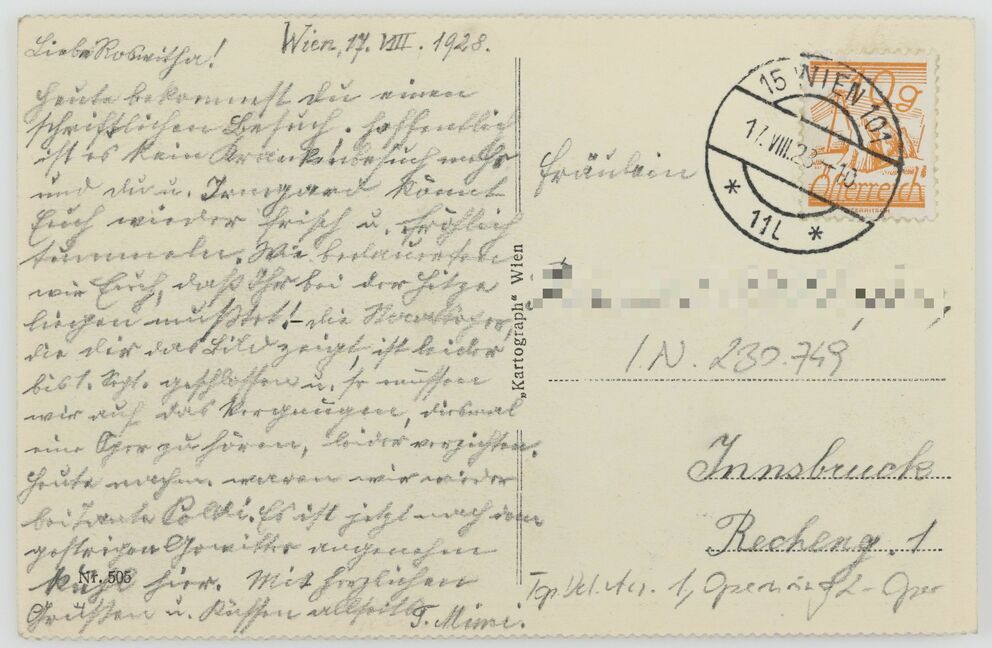 Wien, 17. VIII. 1928.
Liebe Roswitha!
Heute bekommst du einen
schriftlichen Besuch. Hoffentlich
ist es kein Krankenbesuch mehr
und du u. Irmgard könnt
Euch wieder frisch u. fröhlich
tummeln. Wie bedauerten
wir Euch, daß Ihr bei der Hitze
liegen mußtet! – die Staatsoper
die dir das Bild zeigt, ist leider
bis 1. Sept. geschlossen u. so müssen
wir auf das Vergnügen, diesmal
eine Oper zu hören, leider verzichten.
Heute nachm. waren wir wieder
bei Tante Poldi. Es ist jetzt nach dem
gestrigen Gewitter angenehm
kühl hier. Mit herzlichen
Grüßen u. Küssen allseits
T. Mimi.
Nr. 505
„Kartograph“ Wien
15 WIEN 101
17.VIII.28
* 11L *
10g
Österreich
Fräulein
I.N. 230.749
Innsbruck
Recheng. 1
1, Opernring 2 - Oper